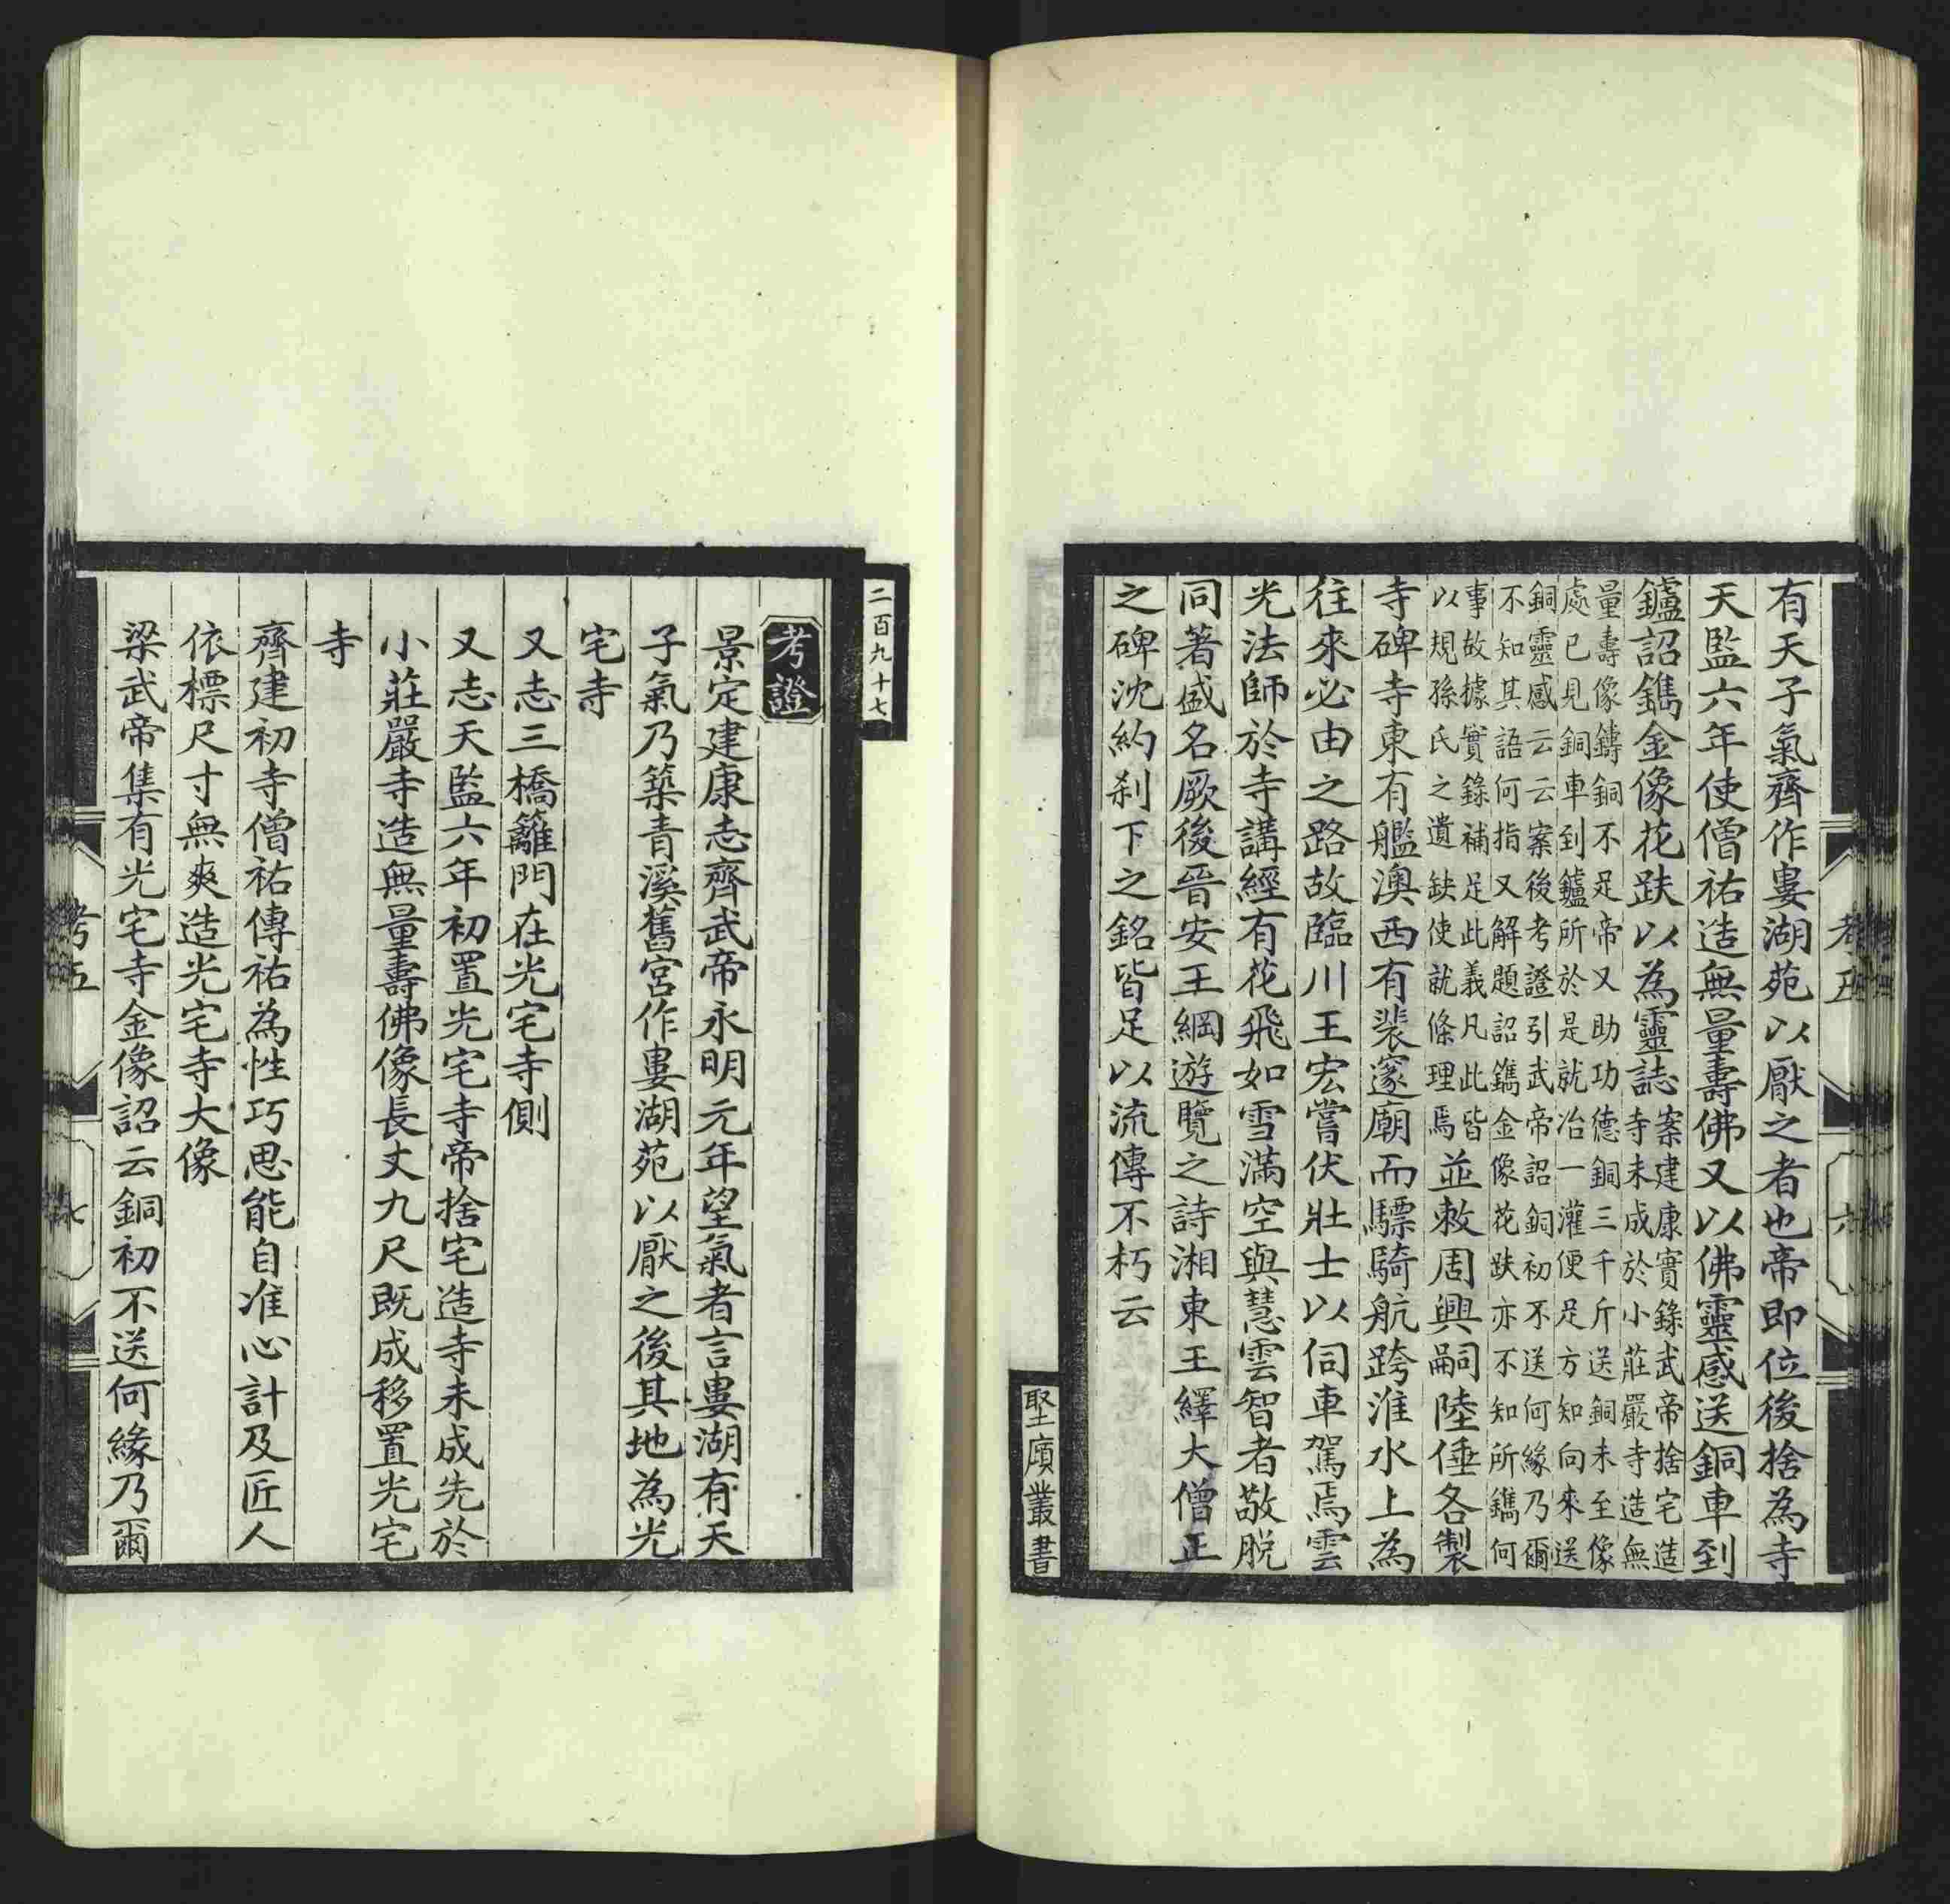 考五
六
有天子氣齊作婁湖苑以厭之者也帝即位後捨為寺
天監六年使僧祐造無量壽佛又以佛靈感送銅車到
鑪詔鐫金像花趺以為靈誌
案建康實錄武帝捨宅造
寺未成於小莊嚴寺造無
量壽像鑄銅不足帝又助功德銅三千斤送銅未至像
處已見銅車到鑪所於是就冶一灌便足方知向來送
銅靈感云云案後考證引武帝詔銅初不送何緣乃爾
不知其語何指又解題詔鐫金像花趺亦不知所鐫何
事故據實錄補足此義凡此皆
以規孫氏之遺缺使就條理焉
並敕周興嗣陸倕各製
寺碑寺東有艦澳西有裴邃廟而驃騎航跨淮水上為
往來必由之路故臨川王宏嘗伏壯士以伺車駕焉雲
光法師於寺講經有花飛如雪滿空與慧雲智者敬脫
同著盛名厥後晉安王綱遊覽之詩湘東王繹大僧正
之碑沈約剎下之銘皆足以流傳不朽云
叢書
二百九十七
考證
景定建康志齊武帝永明元年望氣者言婁湖有天
子氣乃築青溪舊宮作婁湖苑以厭之後其地為光
宅寺
又志三橋籬門在光宅寺側
又志天監六年初置光宅寺帝捨宅造寺未成先於
小莊嚴寺造無量壽佛像長丈九尺既成移置光宅
寺
齊建初寺僧祐傳祐為性巧思能自准心計及匠人
依標尺寸無爽造光宅寺大像
梁武帝集有光宅寺金像詔云銅初不送何緣乃爾
考五
七